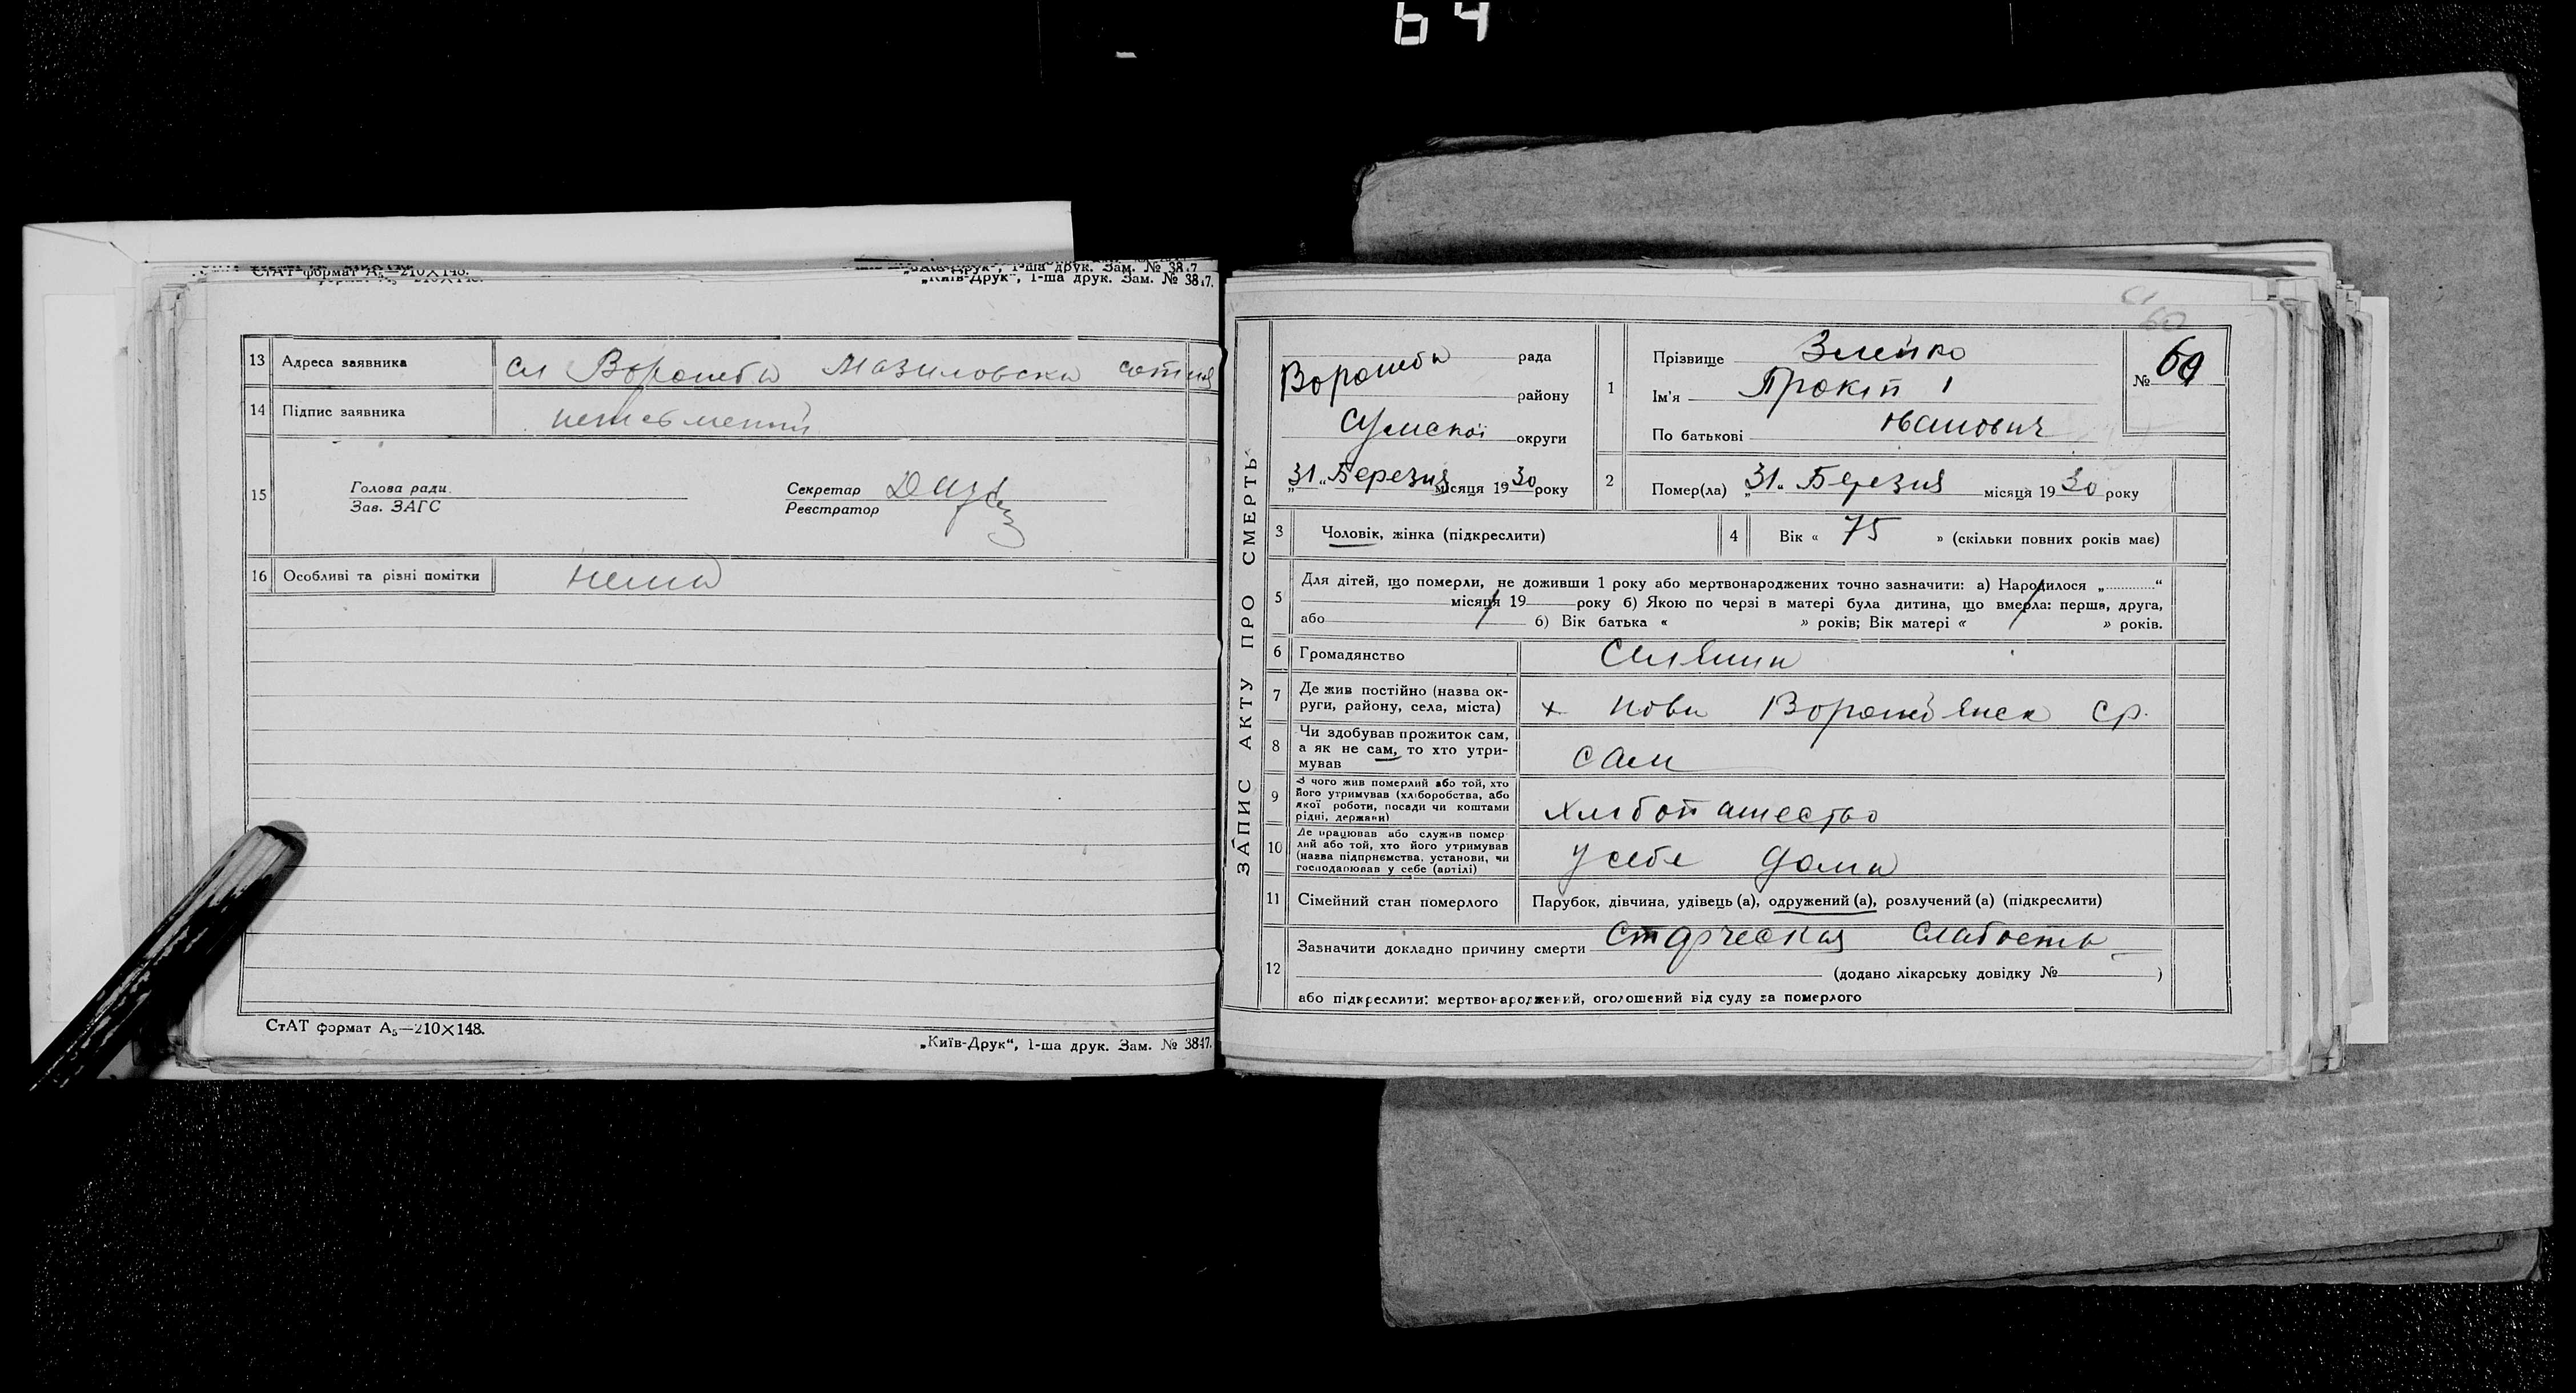 64
СтАТ формат А₅—210×148.
„Київ-Друк“, 1-ша друк. Зам. № 3817.
13 Адреса заявника сл Ворожба Мазиловска сотня
14 Підпис заявника неписьменний
15 Голова ради Секретар
Зав. ЗАГС Реєстратор
16 Особливі та різні помітки нема
СтАТ формат А₅—210×148.
„Київ-Друк“, 1-ша друк. Зам. № 3817.
60
ЗАПИС АКТУ ПРО СМЕРТЬ
Ворожба рада
району
Сумської округи
„31“ Березня місяця 1930 року
1 Прізвище
Ім'я Прокіп
По батькові Іванович
№ 60
2 Помер(ла) „31“ Березня місяця 1930 року
3 Чоловік, жінка (підкреслити)
4 Вік « 75 » (скільки повних років має)
5 Для дітей, що померли, не доживши 1 року або мертвонароджених точно зазначити: а) Народилося „ “
місяця 19 року б) Якою по черзі в матері була дитина, що вмерла: перша, друга,
або б) Вік батька « » років; Вік матері « » років.
6 Громадянство Селянин
7 Де жив постійно (назва ок-
руги, району, села, міста) х Нова Ворожбянск ср.
8 Чи здобував прожиток сам,
а як не сам, то хто утри-
мував сам
9 З чого жив померлий або той, хто
його утримував (хліборобства, або
якої роботи, посади чи коштами
рідні, держави) хлібопашество
10 Де працював або служив помер-
лий або той, хто його утримував
(назва підприємства, установи, чи
господарював у себе (артілі) у себе дома
11 Сімейний стан померлого Парубок, дівчина, удівець (а), одружений (а), розлучений (а) (підкреслити)
12 Зазначити докладно причину смерти Старческая слабость
(додано лікарську довідку № )
або підкреслити: мертвонароджений, оголошений від суду за померлого